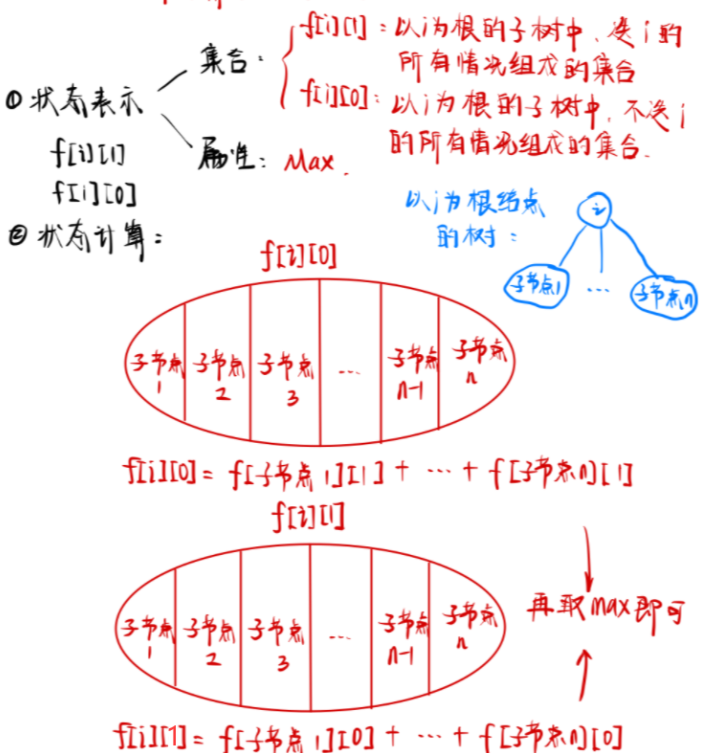 集合：
f[i][1]：以i为根的子树中、选i的
所有情况组成的集合
f[i][0]：以i为根的子树中，不选i
的所有情况组成的集合.
① 状态表示
f[i][1]
f[i][0]
属性：Max.
② 状态计算：
以i为根结点
的树：
i
子节点1 … 子节点n
f[i][0]
子节点1 子节点2 子节点3 … 子节点n-1 子节点n
f[i][0] = f[子节点1][1] + … + f[子节点n][1]
f[i][1]
子节点1 子节点2 子节点3 … 子节点n-1 子节点n
再取max即可
f[i][1] = f[子节点1][0] + … + f[子节点n][0]